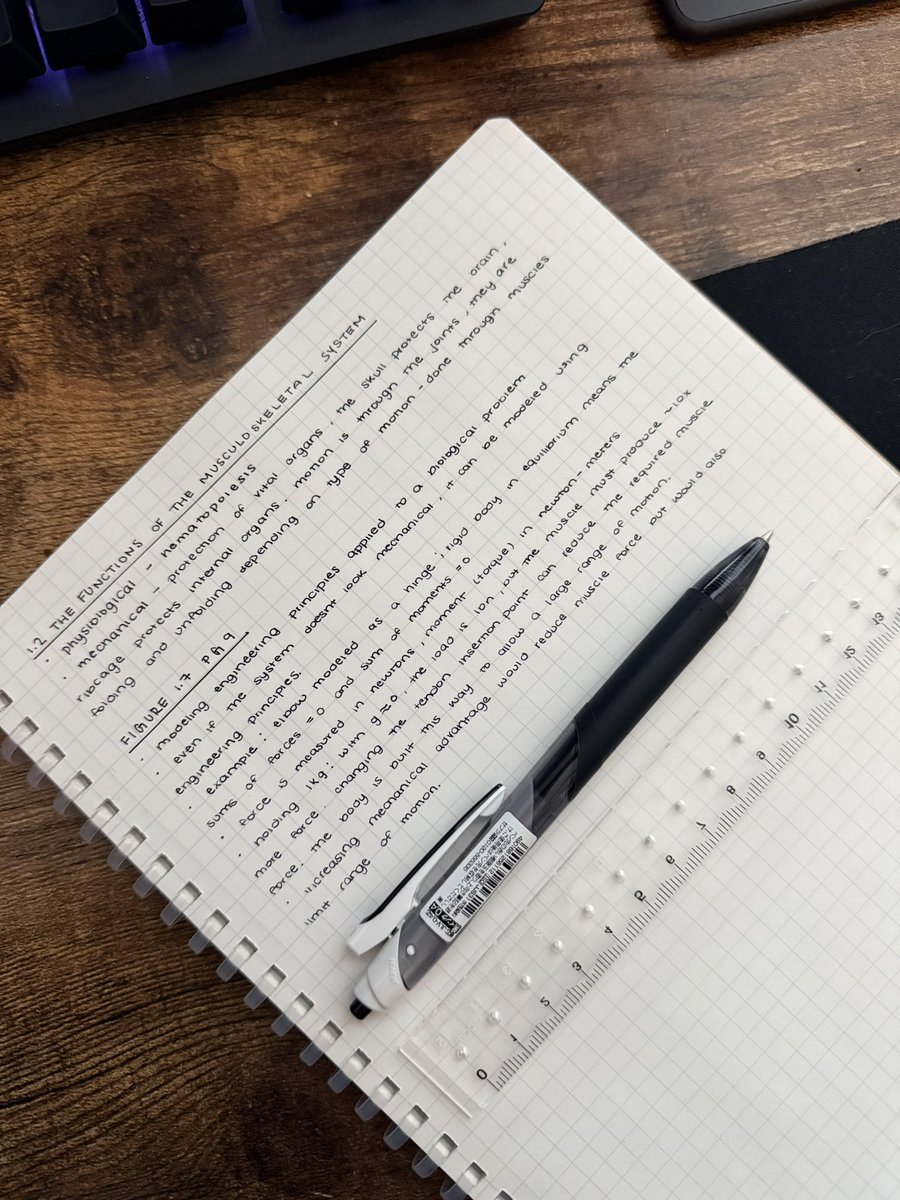 1.2 THE FUNCTIONS OF THE MUSCULOSKELETAL SYSTEM
• physiological - hematopoiesis
• mechanical - protection of vital organs, the skull protects the brain,
ribcage protects internal organs. motion is through the joints, they are
folding and unfolding depending on type of motion - done through muscles
FIGURE 1.7 Pg 9
• modeling engineering principles applied to a biological problem
• even if the system doesnt look mechanical, it can be modeled using
engineering principles.
• example: elbow modeled as a hinge; rigid body in equilibrium means the
sums of forces =0 and sum of moments =0
• force is measured in newtons, moment (torque) in newton-meters
• holding 1kg: with g≈10, the load is 10n, but the muscle must produce ~10x
more force. changing the tendon insertion point can reduce the required muscle
force. the body is built this way to allow a large range of motion.
• increasing mechanical advantage would reduce muscle force but would also
limit range of motion.
0 1 2 3 4 5 6 7 8 9 10 11 12 13